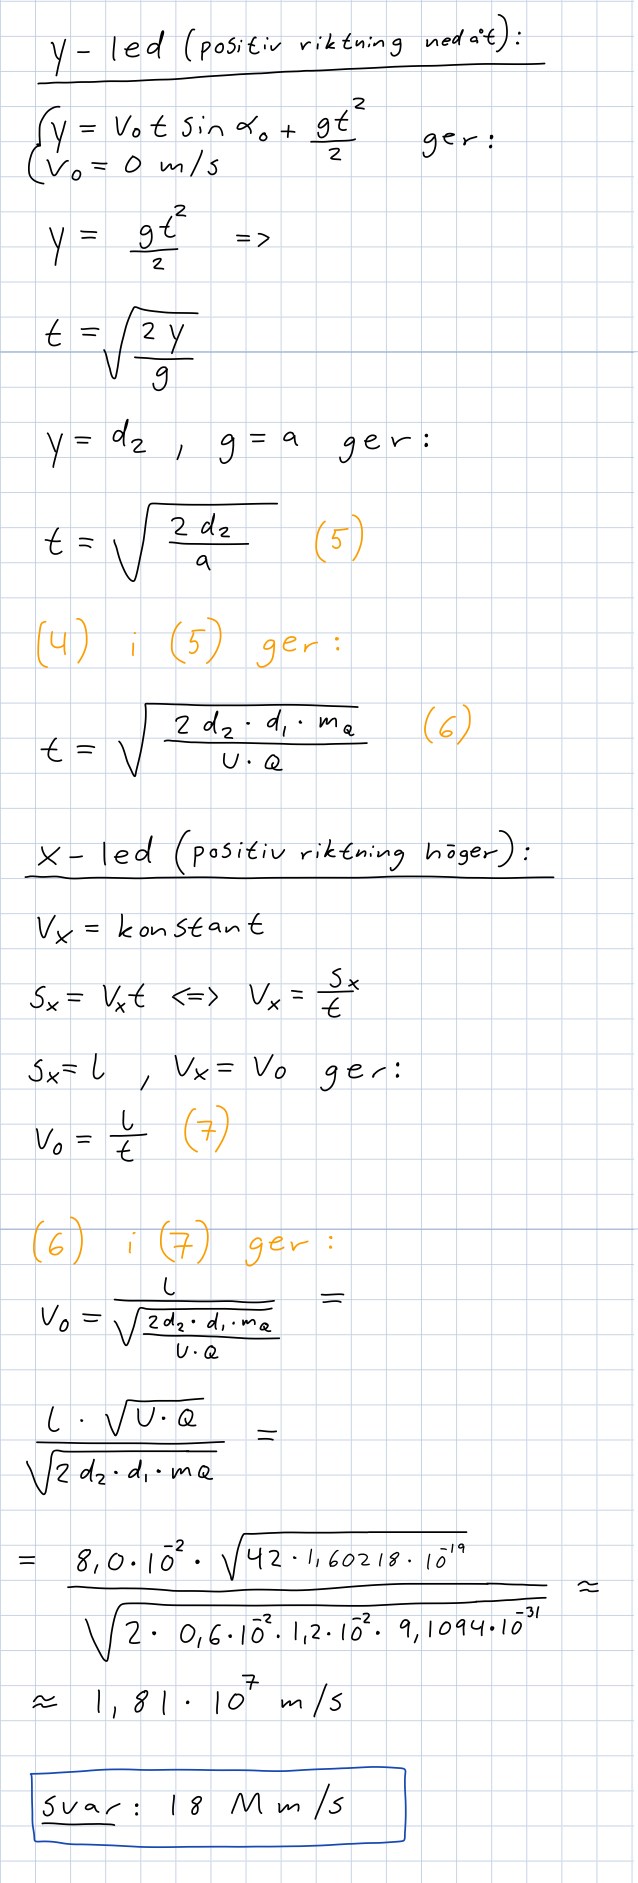 y - led (positiv riktning nedåt):
{y = v₀t sin α₀ + gt²/2 ger:
v₀ = 0 m/s
y = gt²/2 =>
t = √(2y/g)
y = d₂ , g = a ger:
t = √(2d₂/a) (5)
(4) i (5) ger:
t = √(2d₂ · d₁ · m_Q / U · Q) (6)
x - led (positiv riktning höger):
Vx = konstant
Sx = Vxt <=> Vx = Sx/t
Sx = l , Vx = V₀ ger:
V₀ = l/t (7)
(6) i (7) ger:
V₀ = l / √(2d₂ · d₁ · m_Q / U · Q) =
l · √(U · Q) / √(2d₂ · d₁ · m_Q) =
= 8,0 · 10⁻² · √(42 · 1,60218 · 10⁻¹⁹) / √(2 · 0,6 · 10⁻² · 1,2 · 10⁻² · 9,1094 · 10⁻³¹) ≈
≈ 1,81 · 10⁷ m/s
svar: 18 Mm/s